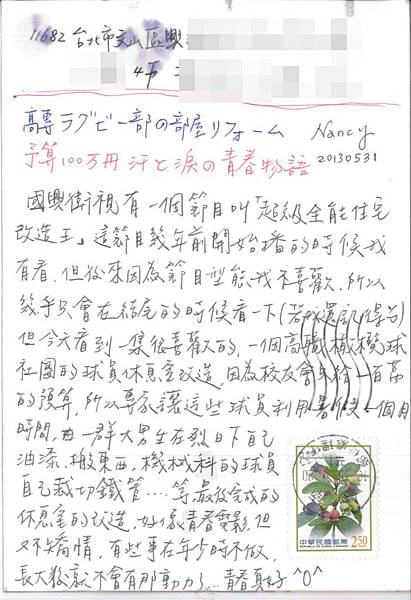 11682 台北市文山區興
4F
高專ラグビー部の部屋リフォーム
Nancy
予算100万冊 汗と淚の青春物語
20130531
國興衛視有一個節目叫「超級全能住宅
改造王」這節目幾年前開始播的時候我
有看，但後來因為節目型態我不喜歡，所以
幾乎只會在結尾的時候看一下(若有遇到
但今天看到一集很喜歡的，一個高職橄欖球
社團的球員休息室改造，因為校友會只給一百萬
的預算，所以專家讓這些球員利用暑假一個月
時間，由一群大男生在烈日下自己
油漆、搬東西，機械科的球員
自己裁切鐵管……等，最後完成的
休息室的改造，好像青春電影，但
又不矯情，有些事在年少時不做，
長大後就不會有那動力了...青春真好 ^O^
中華民國郵票
REPUBLIC OF CHINA (TAIWAN)
250